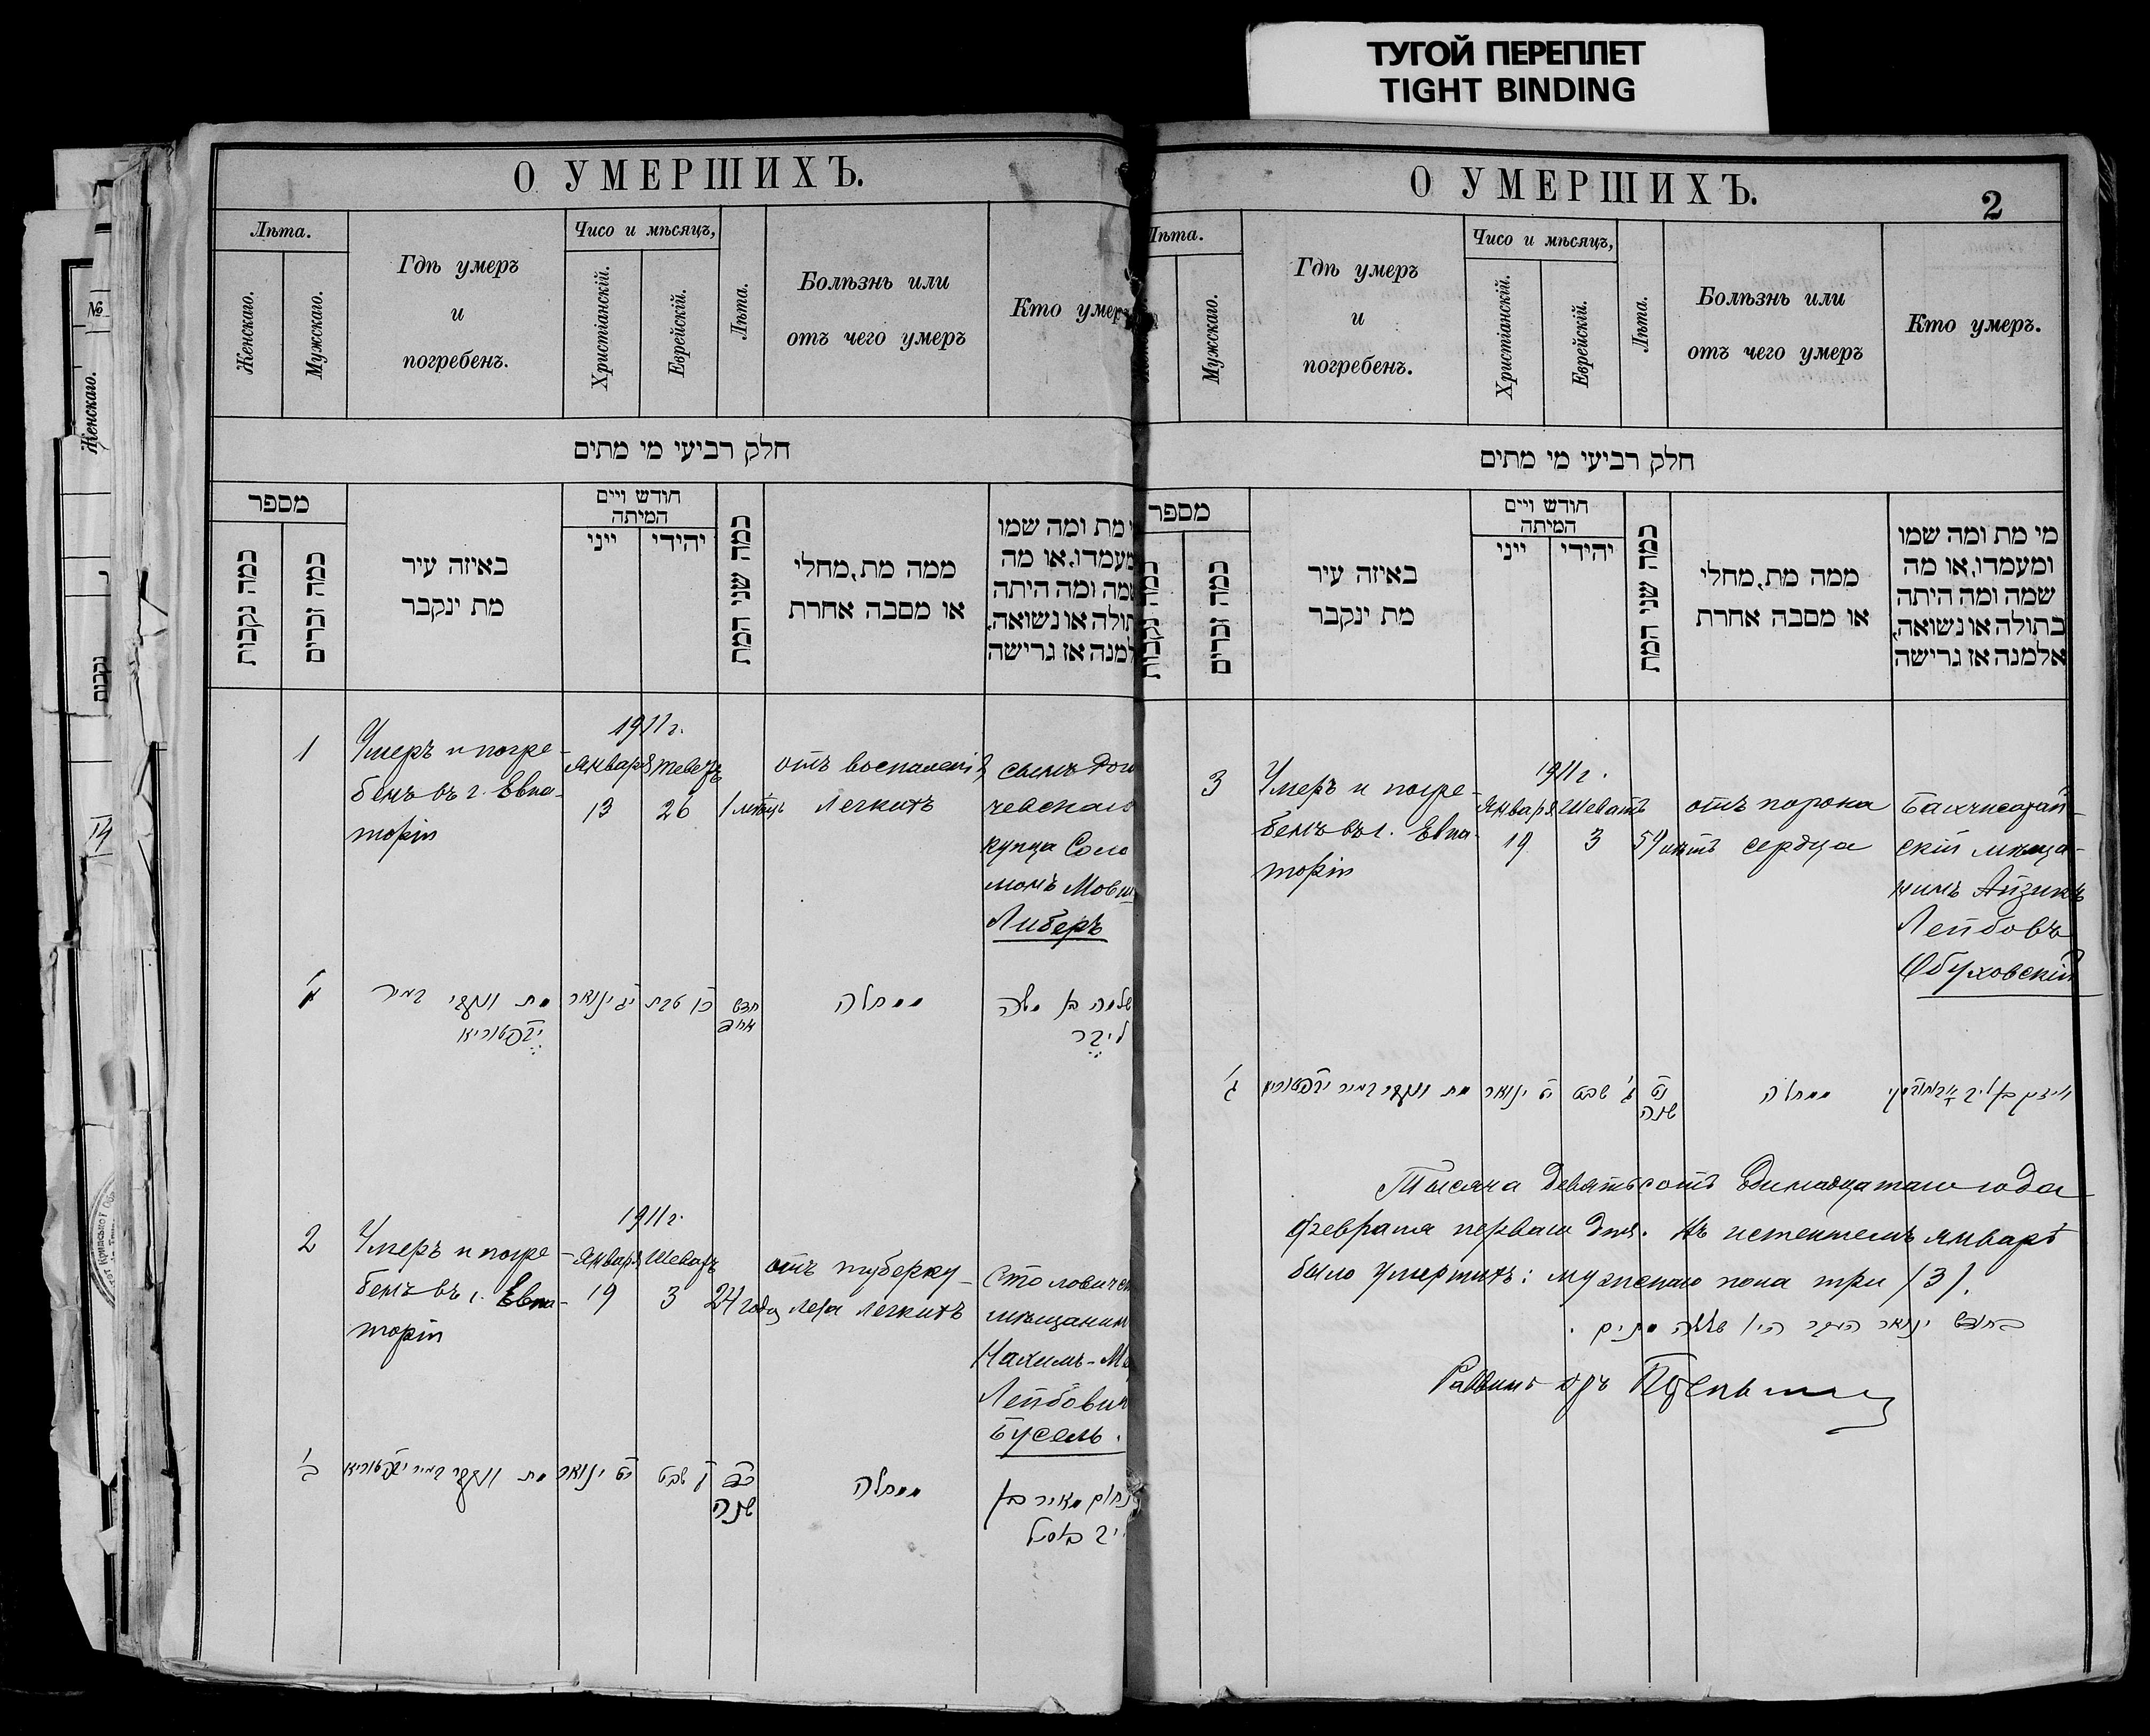 ТУГОЙ ПЕРЕПЛЕТ
TIGHT BINDING
О УМЕРШИХЪ.
Лѣта.
Женскаго.
Мужскаго.
Гдѣ умеръ
и
погребенъ.
Чисо и мѣсяцъ,
Христіанскій.
Еврейскій.
Лѣта.
Болѣзнь или
отъ чего умеръ
Кто умеръ
חלק רביעי מי מתים
מספר
כמה נקבות
כמה זכרים
באיזה עיר
מת ינקבר
חודש ויים
המיתה
ייני
יהידי
כמה שני המת
ממה מת, מחלי
או מסבה אחרת
מי מת ומה שמו
ומעמדו, או מה
שמה ומה היתה
בתולה או נשואה,
אלמנה אז גרישה
1
Умеръ и погре-
бенъ въ г. Евпа-
торіи
1911 г.
Января Теветъ
13 26
1 мѣсяцъ
отъ воспаленія
легкихъ
сынъ
чевскаго
купца Соло
монъ Мовш
Либеръ
א'
מת ונקבר בעיר
יבפטוריא
יג ינואר
כו טבת
חדש
אחד
ממחלה
שלמה בן משה
ליבר
2
Умеръ и погре-
бенъ въ г. Евпа-
торіи
1911 г.
Января Шеватъ
19 3
24 года
отъ туберку-
леза легкихъ
Столовичск
мѣщанинъ
Нахимъ-Ме
Лейбовичъ
Бусель.
ב'
מת ונקבר בעיר יבפטוריא
יט ינואר
ג' שבט
כד
שנה
ממחלה
נחום מאיר בן
ליב בוסל
О УМЕРШИХЪ.
2
Лѣта.
Мужскаго.
Гдѣ умеръ
и
погребенъ.
Чисо и мѣсяцъ,
Христіанскій.
Еврейскій.
Лѣта.
Болѣзнь или
отъ чего умеръ
Кто умеръ.
חלק רביעי מי מתים
מספר
כמה נקבות
כמה זכרים
באיזה עיר
מת ינקבר
חודש ויים
המיתה
ייני
יהידי
כמה שני המת
ממה מת, מחלי
או מסבה אחרת
מי מת ומה שמו
ומעמדו, או מה
שמה ומה היתה
בתולה או נשואה,
אלמנה אז גרישה
3
Умеръ и погре-
бенъ въ г. Евпа-
торіи
1911 г.
Января Шеватъ
19 3
лѣтъ
отъ порока
сердца
Бахчисарай-
скій мѣща-
нинъ Айзикъ
Лейбовъ
Обуховскій
ג'
מת ונקבר בעיר יבפטוריא
יט ינואר
ג' שבט
שנה
ממחלה
אייזיק בן ליב
Тысяча девятьсотъ одинадцатаго года
февраля перваго дня. Въ истекшемъ январѣ
было умершихъ: мужскаго пола три (3).
בחודש ינואר העבר היו שלשה מתים.
Раввинъ
№
Женскаго.
נקבות
14